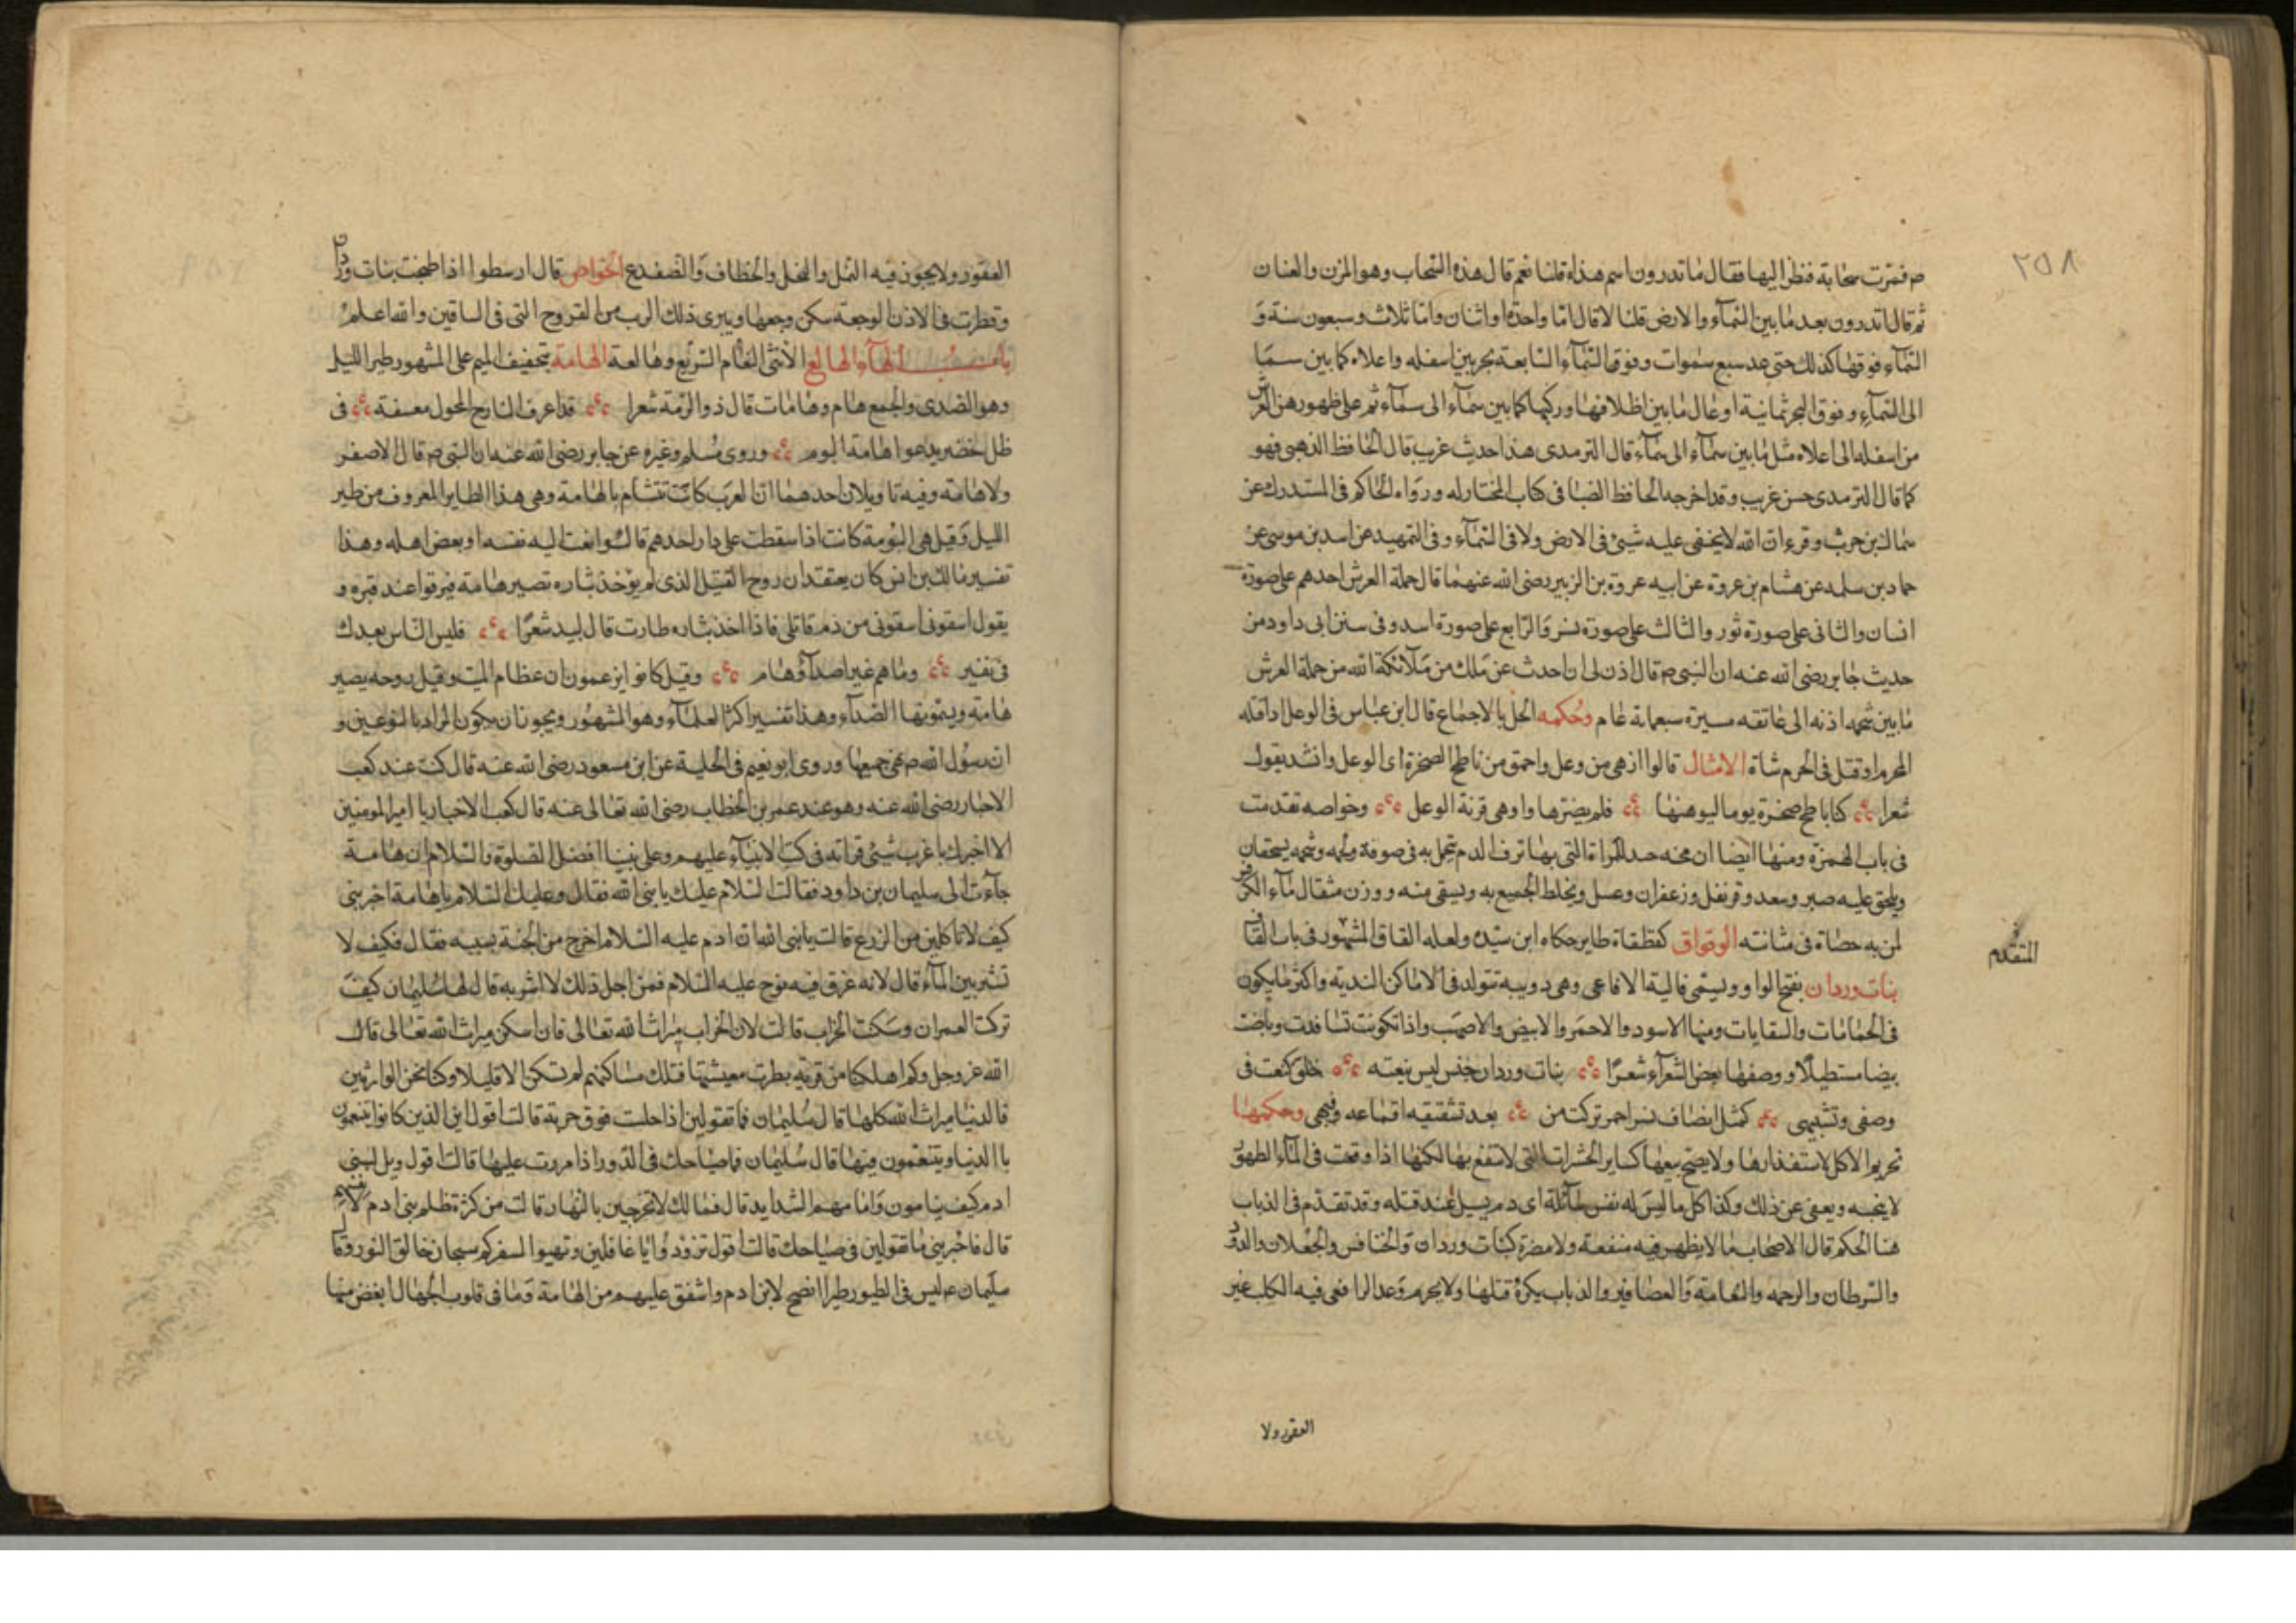 ٢٥٨
م فمرت سحابة فنظر اليها فقال ما تدرون اسم هذه قلنا نعم قال هذه السحاب وهو المزن والعنان
ثم قال اتدرون بعد ما بين السماء والارض قلنا لا قال اما واحدة او اثنان واما ثلاث وسبعون سنة و
السماء فوقها كذلك حتى عد سبع سموات وفوق السماء السابعة بحر بين اسفله واعلاه كما بين سما
الى السماء وفوق البحر ثمانية اوعال ما بين اظلافها وركبها كما بين سماء الى سماء ثم على ظهورهن العرش
من اسفله الى اعلاه مثل ما بين سماء الى سماء قال الترمدى هذا حديث غريب قال الحافظ الذهبى فهو
كما قال الترمدى حسن غريب وقد اخرجه الحافظ الضيا فى كتاب المختار له ورواه الحاكم فى المستدرك عن
سماك بن حرب وقرء ان الله لا يخفى عليه شئ فى الارض ولا فى السماء وفى التمهيد عن اسد بن موسى عن
حماد بن سلمه عن هشام بن عروة عن ابيه عروة بن الزبير رضى الله عنهما قال حملة العرش احدهم على صورة
انسان والثانى على صورة ثور والثالث على صورة نسر والرابع على صورة اسد وفى سنن ابى داود من
حديث جابر رضى الله عنه ان النبى م قال اذن لى ان احدث عن ملك من ملائكة الله من حملة العرش
ما بين شحمه اذنه الى عاتقه مسيرة سبعماية عام وحكمه الحل بالاجماع قال ابن عباس فى الوعل اذا قتله
المحرم او قتل فى الحرم شاة الامثال قالوا ازهى من وعل واحمق من ناطح الصخرة اى الوعل وانشد يقول
شعرا كناطح صخرة يوما ليوهنها فلم يضرها واوهى قرنة الوعل وخواصه تقدمت
فى باب الهمزة ومنها ايضا ان مخه المراة التى بها نزف الدم تتحمل به فى صوفة ولحمه وشحمه يسحقان
ويلحق عليه صبر وسعد وقرنفل وزعفران وعسل ويخلط الجميع به ويسقى منه ووزن مثقال ماء الكرفس
لمن به حصاة فى مثانته الوقواق كفطفاة طاير حكاه ابن سيده ولعله القاق المشهور فى باب القاف
المتقدم
بنات وردان بفتح الواو ويسمى فالية الافاعى وهى دويبه تتولد فى الاماكن الندية واكثر ما يكون
فى الحمامات والسقايات ومنها الاسود والاحمر والابيض والاصهب واذا تكونت تسافدت وباضت
بيضا مستطيلا ووصفها بعض الشعراء شعرا بنات وردان جنس ليس ينعته خلق كنعت فى
وصفى وتشبيهى كمثل انصاف بسر احمر تركت من بعد تشقيقه اقماعه وفيهى وحكمها
تحريم الاكل لاستقذارها ولا يصح بيعها كساير الحشرات التى لا ينتفع بها لكنها اذا وقعت فى الماء الطهور
لا ينجسه ويعفى عن ذلك وكذا كل ما ليس له نفس سائلة اى دم يسيل عند قتله وقد تقدم فى الذباب
هنا الحكم قال الاصحاب ما لا يظهر فيه منفعة ولا مضرة كبنات وردان والخنافس والجعلان والدود
والسرطان والرحمه والنعامة والعصافير والذباب يكره قتلها ولا يحرم وعد الرافعى فيه الكلب غير
العقور ولا
العقور ولا يجوز فيه النمل والنحل والخطاف والضفدع الخواص قال ارسطوا اذا طبخت بنات وردان
وقطرت فى الاذن الوجعة سكن وجعها ويبرى ذلك الرب من القروح التى فى الساقين والله اعلم
باب الهاء الهالع الانثى النعام السريع وهالعة الهامة بتخفيف الميم على المشهور طير الليل
وهو الصدى والجمع هام وهامات قال ذو الرمة شعرا قد اعرف النازح المجهول معسفة فى
ظل اخضر يدعوا هامة البوم وروى مسلم وغيره عن جابر رضى الله عنه ان النبى م قال لا صفر
ولا هامة وفيه تاويلان احدهما ان العرب كانت تتشام بالهامة وهى هذا الطاير المعروف من طير
الليل وقيل هى البومة كانت اذا سقطت على دار احدهم قالوا نعت اليه نفسه او بعض اهله وهذا
تفسير مالك بن انس كان يعتقد ان روح القتيل الذى لم يؤخذ بثاره تصير هامة فيرقوا عند قبره و
يقول اسقونى اسقونى من دم قاتلى فاذا اخذ بثاره طارت قال لبيد شعرا فليس الناس بعدك
فى نفير وما هم غير اصداء وهام وقيل كانوا يزعمون ان عظام الميت وقيل روحه يصير
هامة ويسمونها الصداء وهذا تفسير اكثر العلماء وهو المشهور ويجوز ان يكون المراد بالنوعين و
ان رسول الله م نهى جميعها وروى ابو نعيم فى الحلية عن ابن مسعود رضى الله عنه قال كنت عند كعب
الاحبار رضى الله عنه وهو عند عمر بن الخطاب رضى الله تعالى عنه قال كعب الاخبار يا امير المومنين
الا اخبرك باغرب شئ قراته فى كتب الانبياء عليهم وعلى نبينا افضل الصلوة والسلام ان هامة
جاءت الى سليمان بن داود فقالت السلام عليك يا نبى الله فقال وعليك السلام يا هامة اخبرينى
كيف لا تاكلين من الزرع قالت يا نبى الله ان ادم عليه السلام اخرج من الجنة بسببه فقال فكيف لا
تشربين الماء قال لانه غرق فيه نوح عليه السلام فمن اجل ذلك لا اشربه قال لها سليمان كيف
تركت العمران وسكنت الخراب قالت لان الخراب ميراث الله تعالى فان اسكن ميراث الله تعالى قال
الله عز وجل وكم اهلكنا من قرية بطرت معيشتها فتلك مساكنهم لم تسكن الا قليلا وكنا نحن الوارثين
فالدنيا ميراث الله كلها قال سليمان فما تقولين اذا حلت فوق خربة قالت اقول اين الذين كانوا يتنعمون
باالدنيا ويتنعمون فيها قال سليمان فما صياحك فى الدور اذا مررت عليها قالت اقول ويل لبنى
ادم كيف ينامون وامامهم الشدايد قال فما لك لا تخرجين بالنهار قالت من كثرة ظلم بنى ادم لانفسهم
قال فاخبرينى ما تقولين فى صياحك قالت اقول تزودوا يا غافلين وتهيوا لسفركم سبحان خالق النور وقال
سليمان ع ليس فى الطيور طيرا انصح لابن ادم واشفق عليهم من الهامة وما فى قلوب الجهال ابغض منها